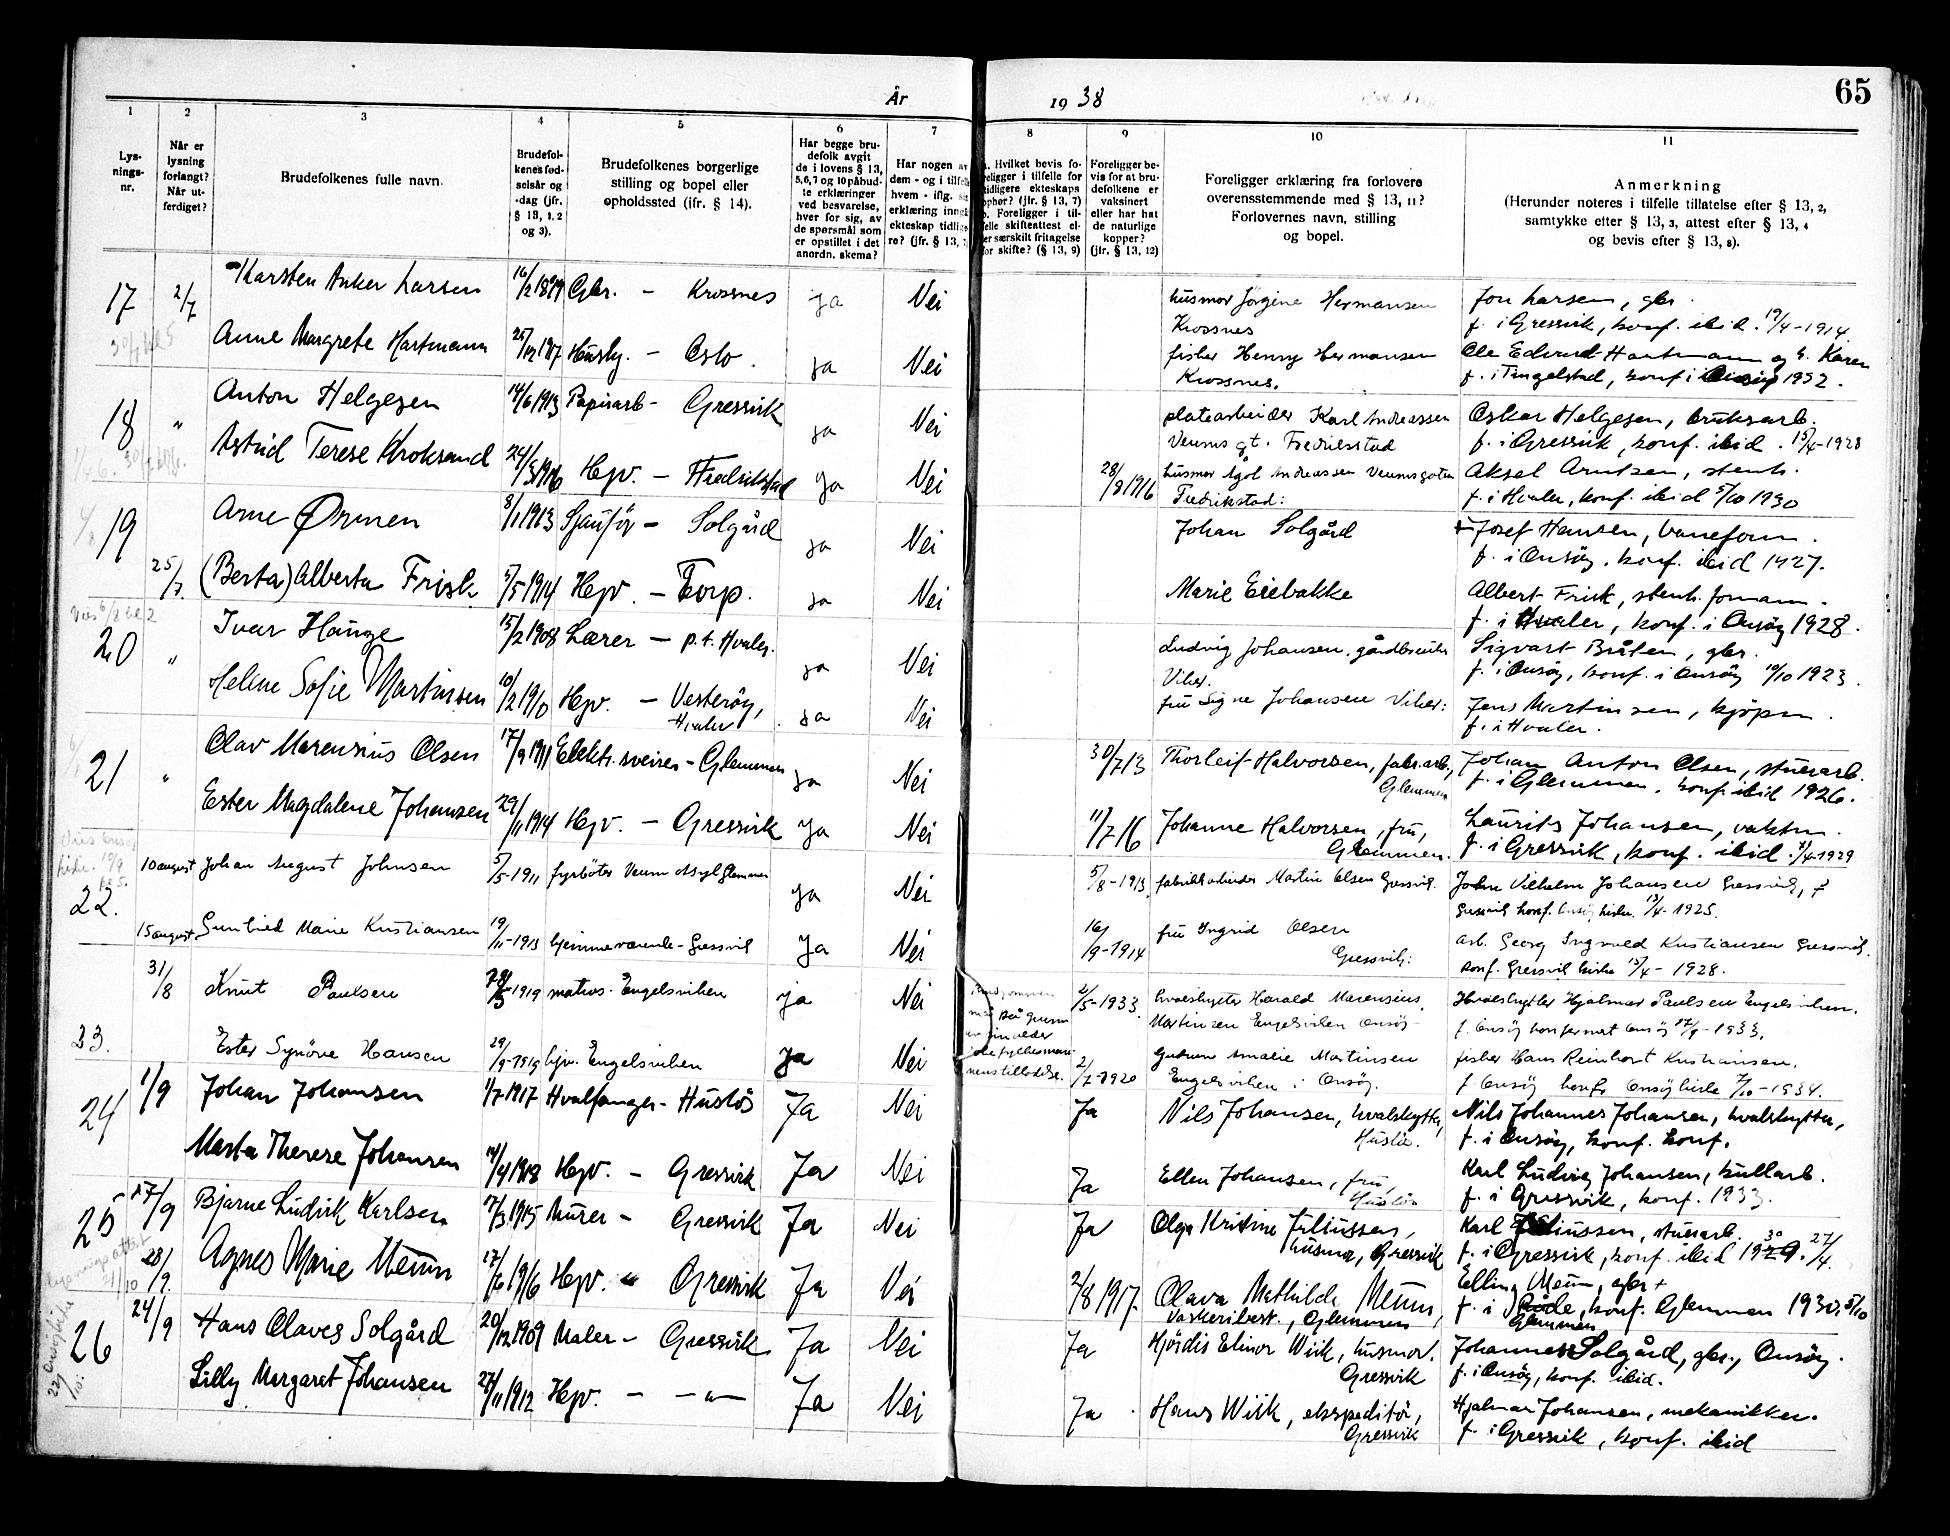 År 1938
65
1 2 3 4 5 6 7 8 9 10 11
Lys-
nings-
nr.
Når er
lysning
forlangt?
Når ut-
ferdiget?
Brudefolkenes fulle navn.
Brudefol-
kenes fød-
selsår og
-dag (jfr.
§ 13, 1, 2
og 3).
Brudefolkenes borgerlige
stilling og bopel eller
opholdssted (ifr. § 14).
Har begge bru-
defolk avgit
de i lovens § 13,
5,6,7 og 10 påbud-
te erklæringer
ved besvarelse,
hver for sig, av
de spørsmål som
er opstillet i det
anordn. skema?
Har nogen av
dem - og i tilfelle
hvem - iflg.
erklæring inng
ekteskap tidlig
re? (jfr. § 13,
Hvilket bevis fo-
religger i tilfelle for
tidligere ekteskaps
ophør? (jfr. § 13, 7)
b. Foreligger i til-
felle skifteattest el-
ler særskilt fritagelse
for skifte? (§ 13, 9)
Foreligger be-
vis for at bru-
defolkene er
vaksinert
eller har hat
de naturlige
kopper?
(jfr. § 13, 12)
Foreligger erklæring fra forlovere
overensstemmende med § 13, 11?
Forlovernes navn, stilling
og bopel.
Anmerkning
(Herunder noteres i tilfelle tillatelse efter § 13, 2,
samtykke efter § 13, 3, attest efter § 13, 4
og bevis efter § 13, 8).
17 2/7 Karsten Anker Larsen 16/2 1894 Gbr. - Krossnes ja Nei husmor Jørgine Hermansen Krossnes Jon Larsen, gbr.
f. i Gressvik, konf. ibid. 19/4-1914.
Anne Margrete Hartmann 25/12 1917 Hushj. - Oslo. ja Nei fisker Henny Hermansen Krossnes. Ole Edvard Hartmann og h. Karen
f. i Tingelstad, konf i Onsøy 1932.
18 " Anton Helgesen 14/6 1913 Papirarb - Gressvik ja Nei platearbeider Karl Andreassen
Veums gt. Fredrikstad Oskar Helgesen, bruksarb.
f. i Gressvik, konf. ibid. 15/4-1928
Astrid Terese Kroksand 24/3 1916 Hjv. - Fredrikstad ja Nei 28/8 1916 husmor Ågot Andreassen Veumsgaten
Fredrikstad: Aksel Arntsen, stenh.
f. i Hvaler, konf. ibid 5/10 1930
19 25/7. Arne Ørmen 8/11 1913 Sjauføy - Solgård ja Nei Johan Solgård + Josef Hansen, baneform.
f. i Onsøy, konf. ibid 1927.
(Berta) Alberta Frisk 5/5 1914 Hjv. - Torp. ja Nei Marie Eiebakke Albert Frisk, stenh. formann.
f. i Hvaler, konf. i Onsøy 1928.
20 " Ivar Hauge 15/2 1908 Lærer - p.t. Hvaler. ja Nei Ludvig Johansen, gårdbruker
Viker. Sigvart Bråten, gbr.
f. i Onsøy, konf. i Onsøy 10/10 1923.
Helene Sofie Martinsen 10/2 1910 Hjv. - Vesterøy,
Hvaler ja Nei fru Signe Johansen Viker: Jens Martinsen, kjøpm.
f. i Hvaler.
21 " Olav Marensius Olsen 17/9 1911 Elektr. sveiser - Glemmen ja Nei 30/7 13 Thorleif Halvorsen, fabr.arb,
Glemmen Johan Anton Olsen, stuerarb.
f. i Glemmen, konf. ibid 1926.
Ester Magdalene Johansen 29/11 1914 Hjv. - Gressvik ja Nei 11/7 16 Johanne Halvorsen, fru,
Glemmen. Laurits Johansen, vaktm.
f. i Gressvik, konf. ibid. 7/4-1929
22. 10 august Johan August Johnsen 5/5-1911 fyrbøter Veum Asyl Glemmen ja Nei 5/8-1913 fabrikkarbeider Martin Olsen Gressvik. Johan Vilhelm Johansen Gressvik, f
Gressvik konf. Onsøy kirke. 19/4-1925.
15 august Gunhild Marie Kristiansen 19/11-1913 hjemmeværende - Gressvik ja Nei 16/9-1914 fru Ingrid Olsen
Gressvik: arb. Georg Ingvald Kristiansen Gressvik.
konf. Gressvik kirke 15/4-1928.
33. 31/8 Knut Paulsen 1919 matros - Engelsviken ja Nei 2/5-1933 hvalskytter Harald Marensius
Martinsen Engelsviken Onsøy - Hvalskytter Hjalmar Paulsen Engelsviken.
f. Onsøy konfirmert Onsøy 17/9-1933.
Ester Synøve Hansen 29/9-1919 hjv. Engelsviken Ja Nei 2/7-1920 Gudrun Amalie Martinsen
Engelsviken i Onsøy. fisker Hans Reinhart Kristiansen.
f. Onsøy konf. Onsøy kirke 7/10-1934.
24 1/9 Johan Johansen 1/7 1917 Hvalfanger - Husløs Ja Nei Ja Nils Johansen, hvalskytter,
Husløs. Nils Johannes Johansen, hvalskytter,
f. i Onsøy, konf. konf.
Marta Therese Johansen 14/4 1918 Hjv. - Gressvik Ja Nei Ja Ellen Johansen, fru,
Husløs Karl Ludvig Johansen, kullarb.
f. i Gressvik, konf. 1933.
25 17/9 Bjarne Ludvik Karlsen 7/3 1915 Murer - Gressvik Ja Nei Ja Olga Kristine Juliussen,
husmor, Gressvik Karl Juliussen, stuerarb.
f. i Gressvik, konf. ibid 1929. 30 27/4.
28/9. Agnes Marie Meum 17/6 1916 Hjv. " Gressvik Ja Nei 2/8 1917. Olava Mathilde Meum,
Vaskeribest., Glemmen Elling Meum, gbr +
f. i Råde, konf. Glemmen 1930, 5/10
Glemmen
26 24/9 Hans Olaves Solgård 20/12 1909 Maler - Gressvik Ja Nei Ja Hjørdis Elinor Wiik, husmor.
Gressvik Johannes Solgård, gbr., Onsøy.
f. i Onsøy, konf. ibid.
Lilly Margaret Johansen 27/11 1912 Hjv. - - " - Ja Nei Ja Hans Wiik, ekspeditør,
Gressvik Hjalmar Johansen, mekaniker.
f. i Gressvik, konf. ibid